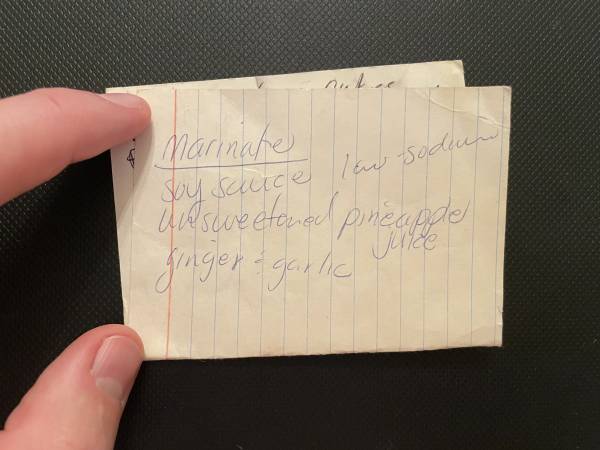 Marinate
soy sauce low-sodium
unsweetened pineapple
juice
ginger & garlic